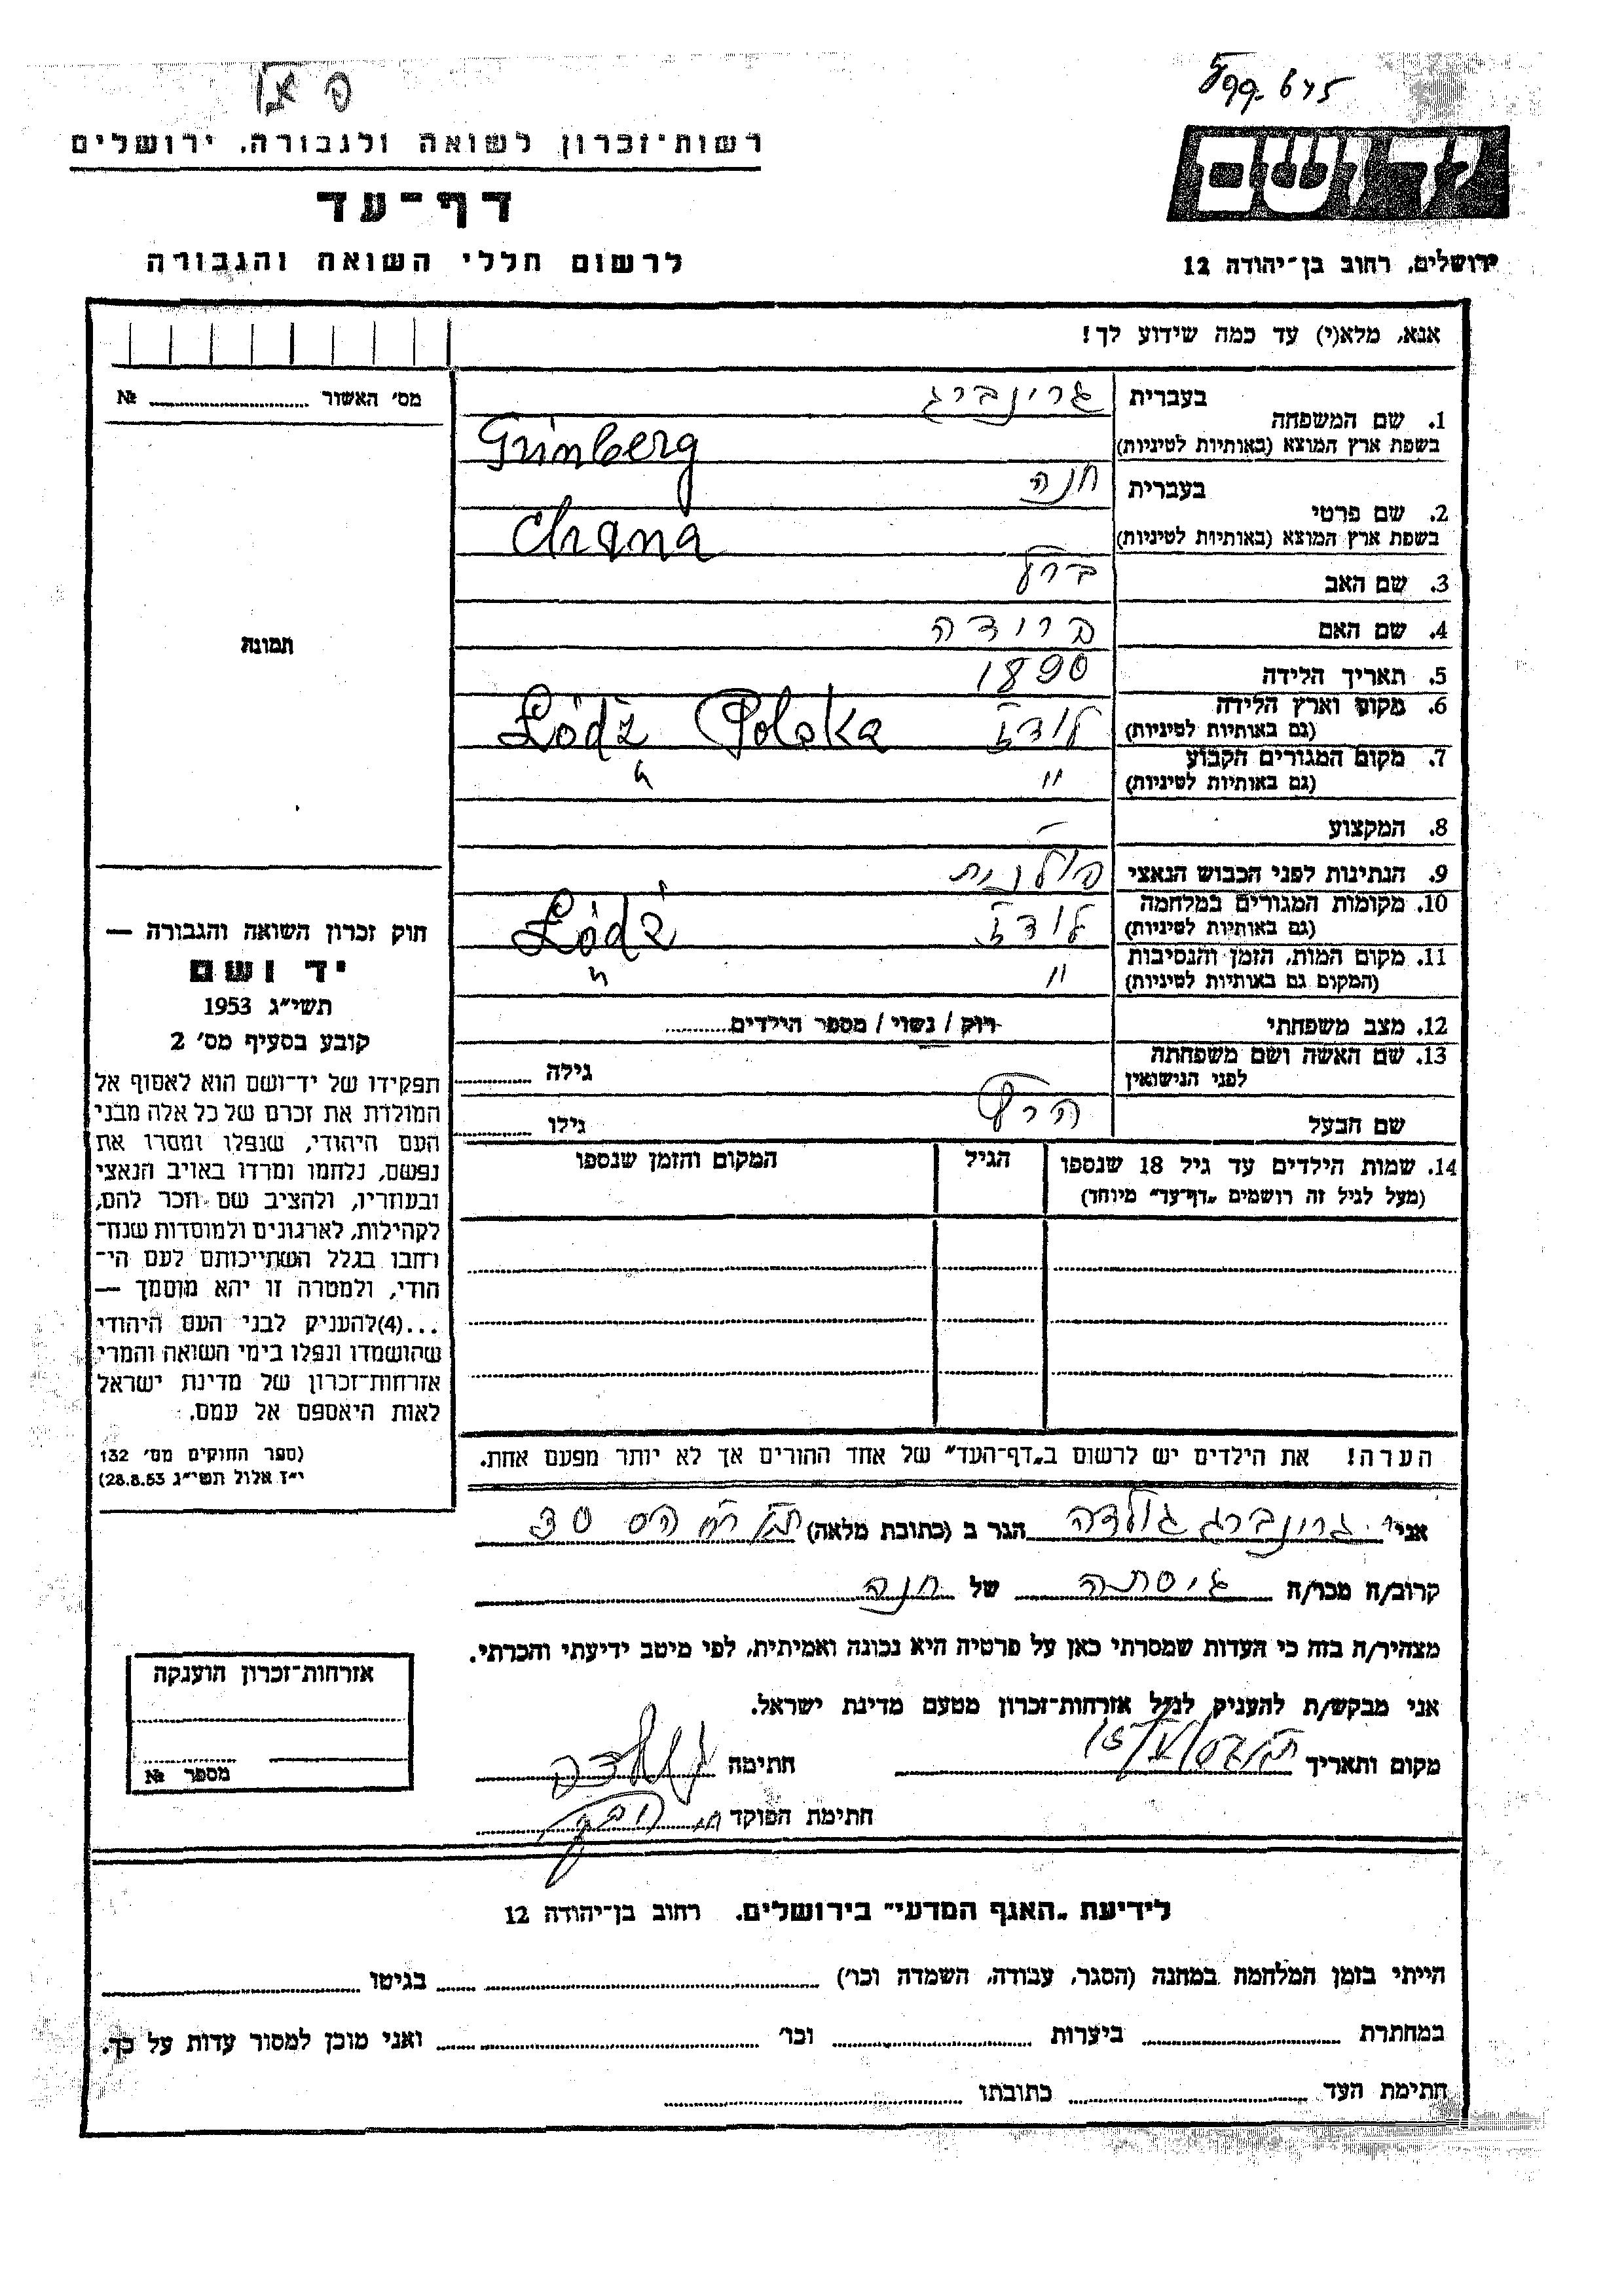 רשות-זכרון לשואה ולגבורה, ירושלים
דף-עד
לרשום חללי השואה והגבורה
ידושם
ירושלים, רחוב בן-יהודה 12
אנא, מלא(י) עד כמה שידוע לך!
מס׳ האשור № 
1. שם המשפחה בעברית גרינברג
בשפת ארץ המוצא (באותיות לטיניות) Grinberg
2. שם פרטי בעברית חנה
בשפת ארץ המוצא (באותיות לטיניות) Chana
3. שם האב ברל
4. שם האם ברודה
5. תאריך הלידה 1890
6. מקום וארץ הלידה (גם באותיות לטיניות) לודז Łódź Polska
7. מקום המגורים הקבוע (גם באותיות לטיניות) " "
8. המקצוע —
9. הנתינות לפני הכבוש הנאצי פולנית
10. מקומות המגורים במלחמה (גם באותיות לטיניות) לודז Łódź
11. מקום המות, הזמן והנסיבות (המקום גם באותיות לטיניות) " "
12. מצב משפחתי רוק / נשוי / מספר הילדים
13. שם האשה ושם משפחתה לפני הנישואין גילה
שם הבעל גילו
14. שמות הילדים עד גיל 18 שנספו הגיל המקום והזמן שנספו
(מעל לגיל זה רושמים „דף-עד" מיוחד)
תמונה
חוק זכרון השואה והגבורה —
יד ושם
תשי״ג 1953
קובע בסעיף מס׳ 2
תפקידו של יד-ושם הוא לאסוף אל
המולדת את זכרם של כל אלה מבני
העם היהודי, שנפלו ומסרו את
נפשם, נלחמו ומרדו באויב הנאצי
ובעוזריו, ולהציב שם וזכר להם,
לקהילות, לארגונים ולמוסדות שנח-
רחבו בגלל השתייכותם לעם הי-
הודי, ולמטרה זו יהא מוסמך —
...(4)להעניק לבני העם היהודי
שהושמדו ונפלו בימי השואה והמרי
אזרחות-זכרון של מדינת ישראל
לאות היאספם אל עמם.
(ספר החוקים מס׳ 132
י״ז אלול תשי״ג 28.8.53)
הערה! את הילדים יש לרשום ב„דף-העד" של אחד ההורים אך לא יותר מפעם אחת.
אני גרונברג גולדה הגר ב (כתובת מלאה) 30
קרוב/ה מכר/ה גיסתה של חנה
מצהיר/ה בזה כי העדות שמסרתי כאן על פרטיה היא נכונה ואמיתית, לפי מיטב ידיעתי והכרתי.
אני מבקש/ת להעניק לנ״ל אזרחות-זכרון מטעם מדינת ישראל.
מקום ותאריך חתימה
חתימת הפוקד
אזרחות-זכרון הוענקה
מספר №
לידיעת „האגף המדעי" בירושלים, רחוב בן-יהודה 12
הייתי בזמן המלחמה במחנה (הסגר, עבודה, השמדה וכו׳) בגיטו
במחתרת ביערות וכו׳ ואני מוכן למסור עדות על כך.
חתימת העד כתובתו